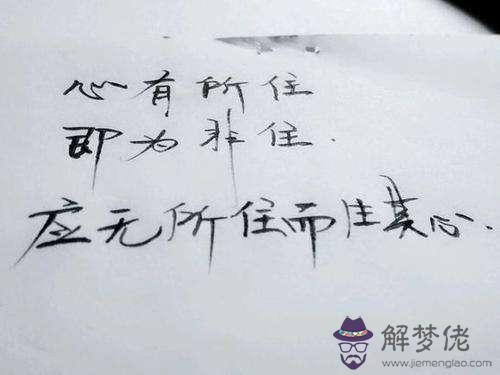 心有所住
即为非住.
应无所住而住其心.
解梦佬
www.jiemenglao.com